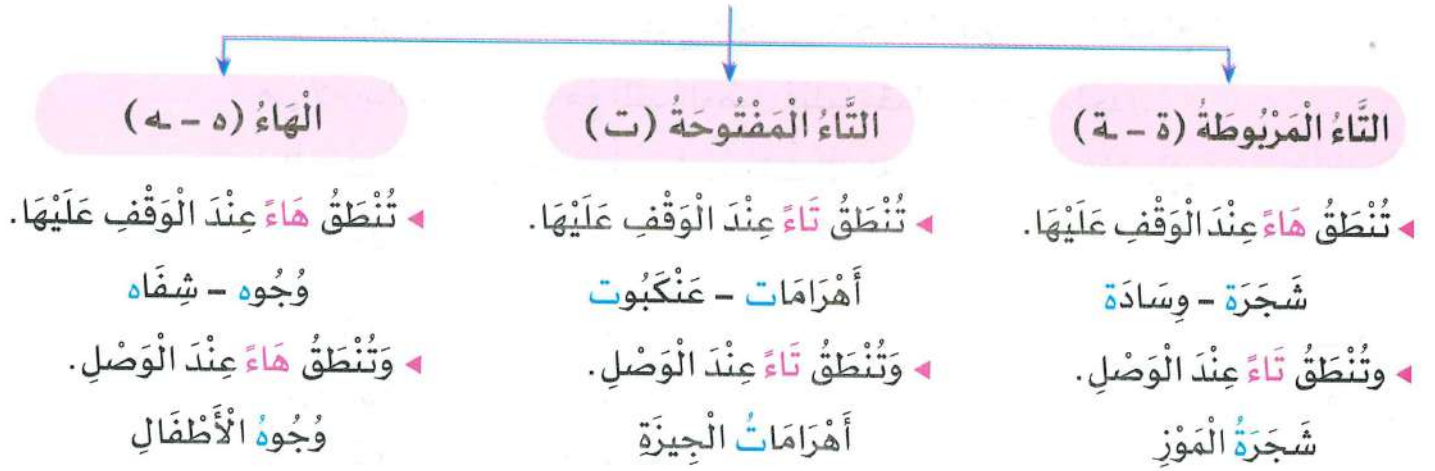 التَّاءُ الْمَرْبُوطَةُ (ة - ـة)
◂ تُنْطَقُ هَاءً عِنْدَ الْوَقْفِ عَلَيْهَا.
شَجَرَة - وِسَادَة
◂ وتُنْطَقُ تَاءً عِنْدَ الْوَصْلِ.
شَجَرَةُ الْمَوْزِ
التَّاءُ الْمَفْتُوحَةُ (ت)
◂ تُنْطَقُ تَاءً عِنْدَ الْوَقْفِ عَلَيْهَا.
أَهْرَامَات - عَنْكَبُوت
◂ وَتُنْطَقُ تَاءً عِنْدَ الْوَصْلِ.
أَهْرَامَاتُ الْجِيزَةِ
الْهَاءُ (ه - ـه)
◂ تُنْطَقُ هَاءً عِنْدَ الْوَقْفِ عَلَيْهَا.
وُجُوه - شِفَاه
◂ وَتُنْطَقُ هَاءً عِنْدَ الْوَصْلِ.
وُجُوهُ الْأَطْفَالِ